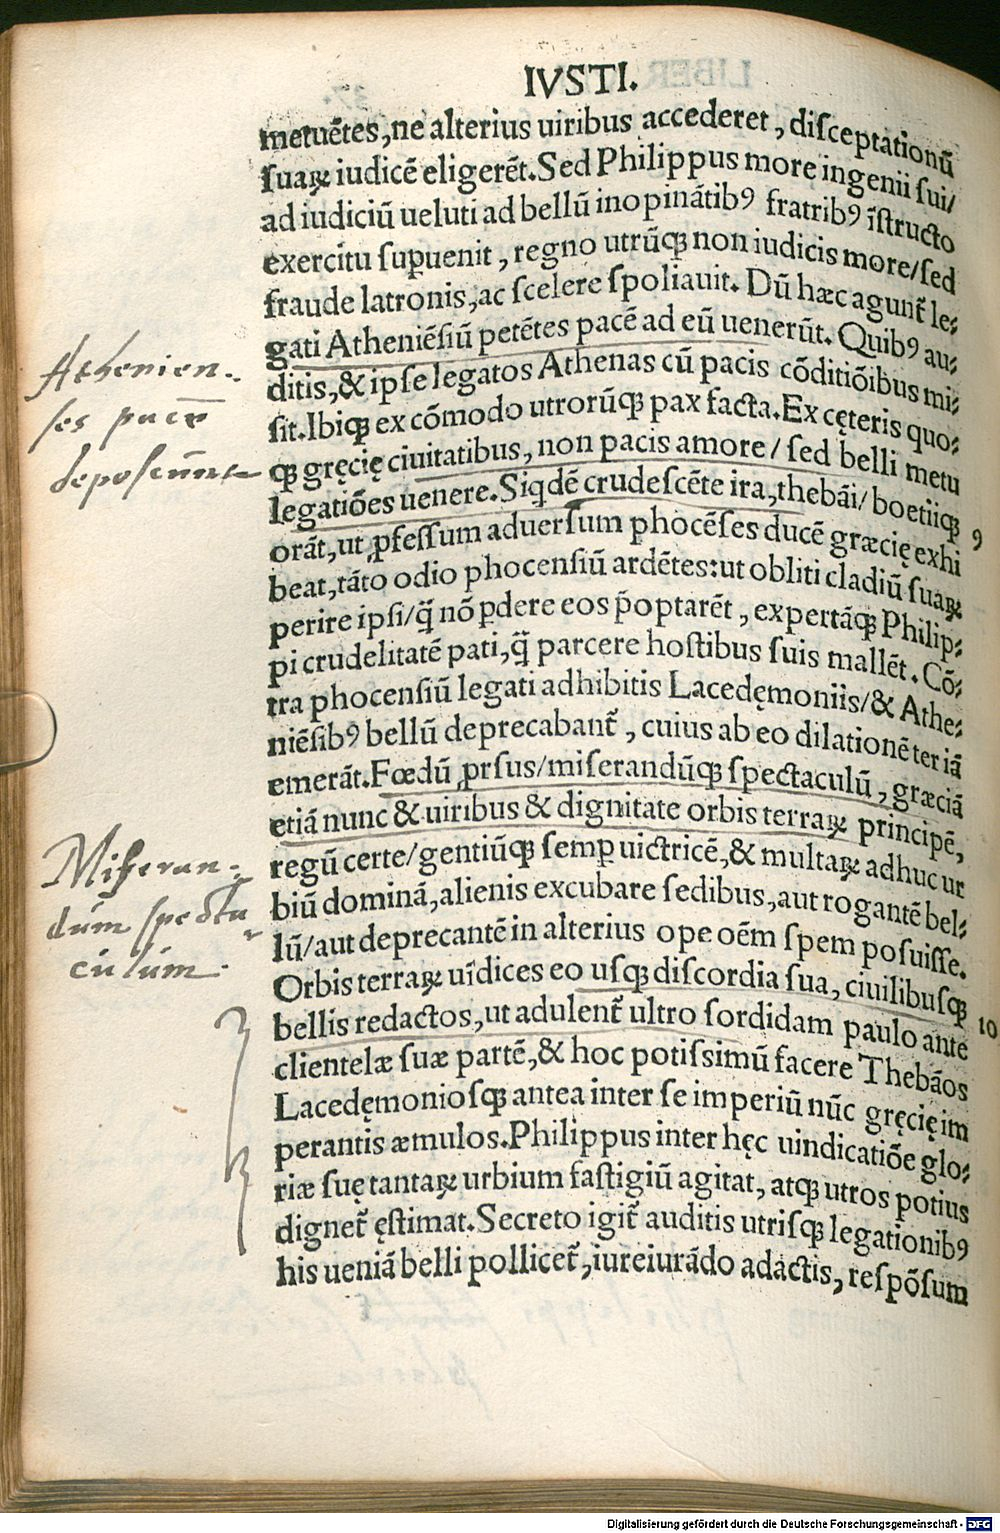 IVSTI.
metuētes, ne alterius uiribus accederet, disceptationū
suaꝝ iudicē eligerēt. Sed Philippus more ingenii sui/
ad iudiciū ueluti ad bellū inopinātibꝰ fratribꝰ īstructo
exercitu suꝑuenit, regno utrūqꝫ non iudicis more/sed
fraude latronis, ac scelere spoliauit. Dū hæc agunt̃ le⸗
gati Atheniēsiū petētes pacē ad eū uenerūt. Quibꝰ au⸗
ditis, & ipse legatos Athenas cū pacis cōditiōibus mi⸗
sit. Ibiqꝫ ex cōmodo utrorūqꝫ pax facta. Ex cęteris quo⸗
qꝫ gręcię ciuitatibus, non pacis amore/ sed belli metu
legatiōes uenere. Siqdē crudescēte ira, thebāi/ boetiiqꝫ
orāt, ut ꝓfessum aduersum phocēses ducē græcię exhi
beat, tāto odio phocensiū ardētes: ut obliti cladiū suaꝝ
perire ipsi/ q̄ nō ꝑdere eos p̄optarēt, expertāqꝫ Philip⸗
pi crudelitatē pati, q̄ parcere hostibus suis mallēt. Cō⸗
tra phocensiū legati adhibitis Lacedęmoniis/ & Athe⸗
niēsibꝰ bellū deprecabant̃, cuius ab eo dilationē ter iā
emerāt. Fœdū ꝓrsus/ miserandūqꝫ spectaculū, græciā
etiā nunc & uiribus & dignitate orbis terraꝝ principē,
regū certe/ gentiūqꝫ semꝑ uictricē, & multaꝝ adhuc ur
biū dominā, alienis excubare sedibus, aut rogantē bel⸗
lū/ aut deprecantē in alterius ope oēm spem posuisse.
Orbis terraꝝ uīdices eo usqꝫ discordia sua, ciuilibusqꝫ
bellis redactos, ut adulent̃ ultro sordidam paulo ante
clientelæ suæ partē, & hoc potissimū facere Thebāos
Lacedęmoniosqꝫ antea inter se imperiū nūc gręcię im
perantis æmulos. Philippus inter hęc uindicatiōe glo⸗
riæ suę tantaꝝ urbium fastigiū agitat, atqꝫ utros potius
dignet̃ ęstimat. Secreto igit̃ auditis utrisqꝫ legationibꝰ
his ueniā belli pollicet̃, iureiurādo adactis, respōsum
Athenien-
ses pacē
deposcunt
9
Miseran-
dum specta
culum.
10
Digitalisierung gefördert durch die Deutsche Forschungsgemeinschaft - DFG